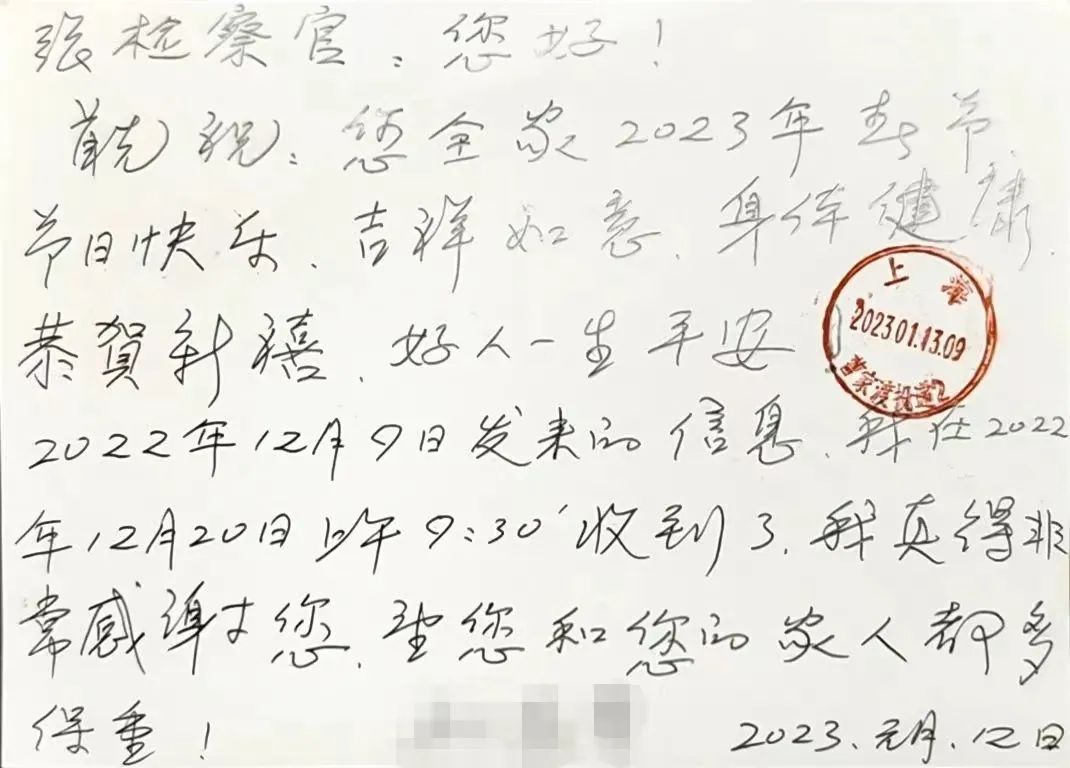 张检察官：您好！
首先祝：您全家2023年春节
节日快乐、吉祥如意、身体健康
恭贺新禧、好人一生平安！
2022年12月9日发来的信息、我在2022
年12月20日上午9:30'收到了、我真得非
常感谢您、望您和您的家人都多
保重！
2023、元月、12日
上
2023.01.13.09